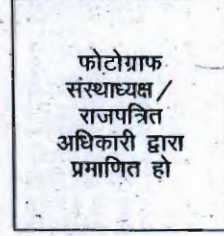 फोटोग्राफ
संस्थाध्यक्ष /
राजपत्रित
अधिकारी द्वारा
प्रमाणित हो